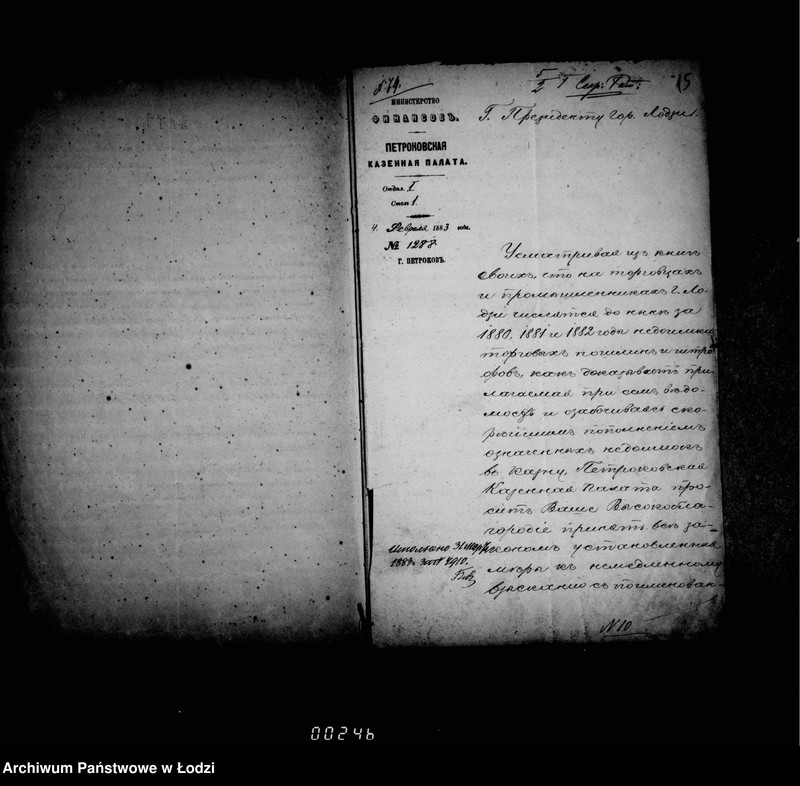 № 74.
15
МИНИСТЕРСТВО
ФИНАНСОВЪ.
ПЕТРОКОВСКАЯ
КАЗЕННАЯ ПАЛАТА.
Отдѣл. I
Столъ 1.
4. Февраля 1883 года.
№ 1288.
Г. ПЕТРОКОВЪ.
Г. Президенту гор. Лодзи.
Усматривая изъ книгъ
своихъ, что на торговцахъ
и промышленникахъ г. Ло-
дзи числятся до нынѣ за
1880, 1881 и 1882 годы недоимки
торговыхъ пошлинъ и штра-
фовъ, какъ доказываетъ при-
лагаемая при семъ вѣдо-
мость и озабочиваясь ско-
рѣйшимъ пополненіемъ
означенныхъ недоимокъ
въ Казну, Петроковская
Казенная Палата про-
ситъ Ваше Высокобла-
городіе принять всѣ за-
кономъ установленныя
мѣры къ немедленному
взысканію съ поименован-
Исполнено 31 Марта
1883 г.
№ 10
00246
Archiwum Państwowe w Łodzi